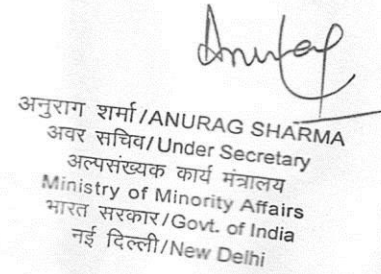 Anurag
अनुराग शर्मा/ANURAG SHARMA
अवर सचिव/Under Secretary
अल्पसंख्यक कार्य मंत्रालय
Ministry of Minority Affairs
भारत सरकार/Govt. of India
नई दिल्ली/New Delhi